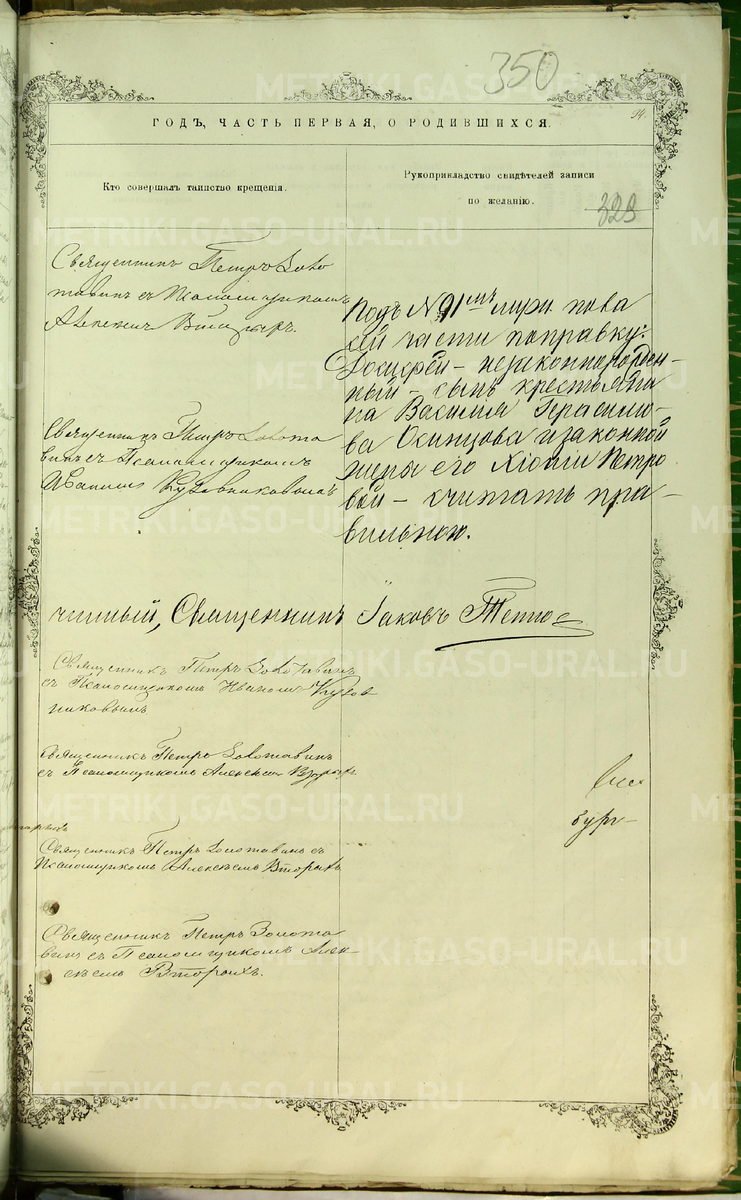 350
ГОДЪ, ЧАСТЬ ПЕРВАЯ, О РОДИВШИХСЯ.
Кто совершалъ таинство крещенія.
Рукоприкладство свидѣтелей записи
по желанію.
329
Священникъ Петръ Золо
тавинъ съ Псаломщикомъ
Алексѣемъ Вторыхъ.
Подъ № 91мъ муж. пола
сей части поправку:
Досифей – незаконнорожден-
ный – сынъ крестьяни
на Василія Герасимо
ва Осинцова и законной
жены его Хіоніи Петро
вой – считать пра-
вильною.
Священникъ Петръ Золота
винъ съ Псаломщикомъ
Иваномъ Кузовниковымъ
чинный, Священникъ Іаковъ
Священникъ Петръ Золотавинъ
съ Псаломщикомъ Иваномъ Кузов
никовымъ
Священникъ Петръ Золотавинъ
съ Псаломщикомъ Алексѣемъ Вторыхъ
бург-
Священникъ Петръ Золотавинъ съ
Псаломщикомъ Алексѣемъ Вторыхъ
Священникъ Петръ Золота
винъ съ Псаломщикомъ Алек-
сѣемъ Вторыхъ.
METRIKI.GASO-URAL.RU